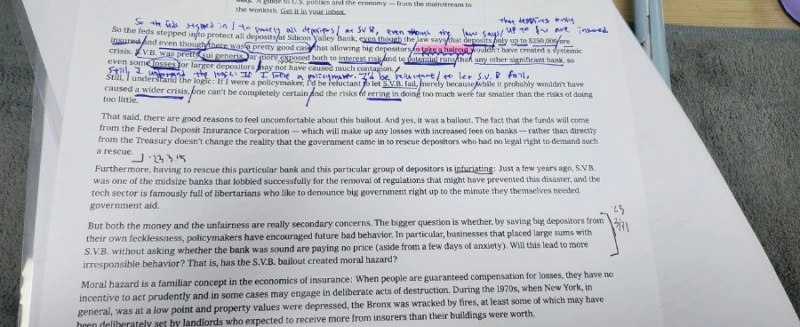 the wonkish. Get it in your inbox.
So the feds stepped in / to
all depositors / at SVB, even
the law says /
So the feds stepped in to protect all deposits at Silicon Valley Bank, even though the law says that deposits only up to $250,000 are
insured and even though there was a pretty good case that allowing big depositors to take a haircut wouldn't have created a systemic
crisis. S.V.B. was pretty sui generis, far more exposed both to interest risk and to potential runs than any other significant bank, so
even some losses for larger depositors may not have caused much contagion.
Still, I understand the logic: If I were a policymaker, I'd be reluctant / to let S.V.B fail,
Still, I understand the logic: If I were a policymaker, I'd be reluctant to let S.V.B. fail, merely because while it probably wouldn't have
caused a wider crisis, one can't be completely certain and the risks of erring in doing too much were far smaller than the risks of doing
too little.
That said, there are good reasons to feel uncomfortable about this bailout. And yes, it was a bailout. The fact that the funds will come
from the Federal Deposit Insurance Corporation — which will make up any losses with increased fees on banks — rather than directly
from the Treasury doesn't change the reality that the government came in to rescue depositors who had no legal right to demand such
a rescue.
Furthermore, having to rescue this particular bank and this particular group of depositors is infuriating: Just a few years ago, S.V.B.
was one of the midsize banks that lobbied successfully for the removal of regulations that might have prevented this disaster, and the
tech sector is famously full of libertarians who like to denounce big government right up to the minute they themselves needed
government aid.
But both the money and the unfairness are really secondary concerns. The bigger question is whether, by saving big depositors from
their own fecklessness, policymakers have encouraged future bad behavior. In particular, businesses that placed large sums with
S.V.B. without asking whether the bank was sound are paying no price (aside from a few days of anxiety). Will this lead to more
irresponsible behavior? That is, has the S.V.B. bailout created moral hazard?
Moral hazard is a familiar concept in the economics of insurance: When people are guaranteed compensation for losses, they have no
incentive to act prudently and in some cases may engage in deliberate acts of destruction. During the 1970s, when New York, in
general, was at a low point and property values were depressed, the Bronx was wracked by fires, at least some of which may have
been deliberately set by landlords who expected to receive more from insurers than their buildings were worth.